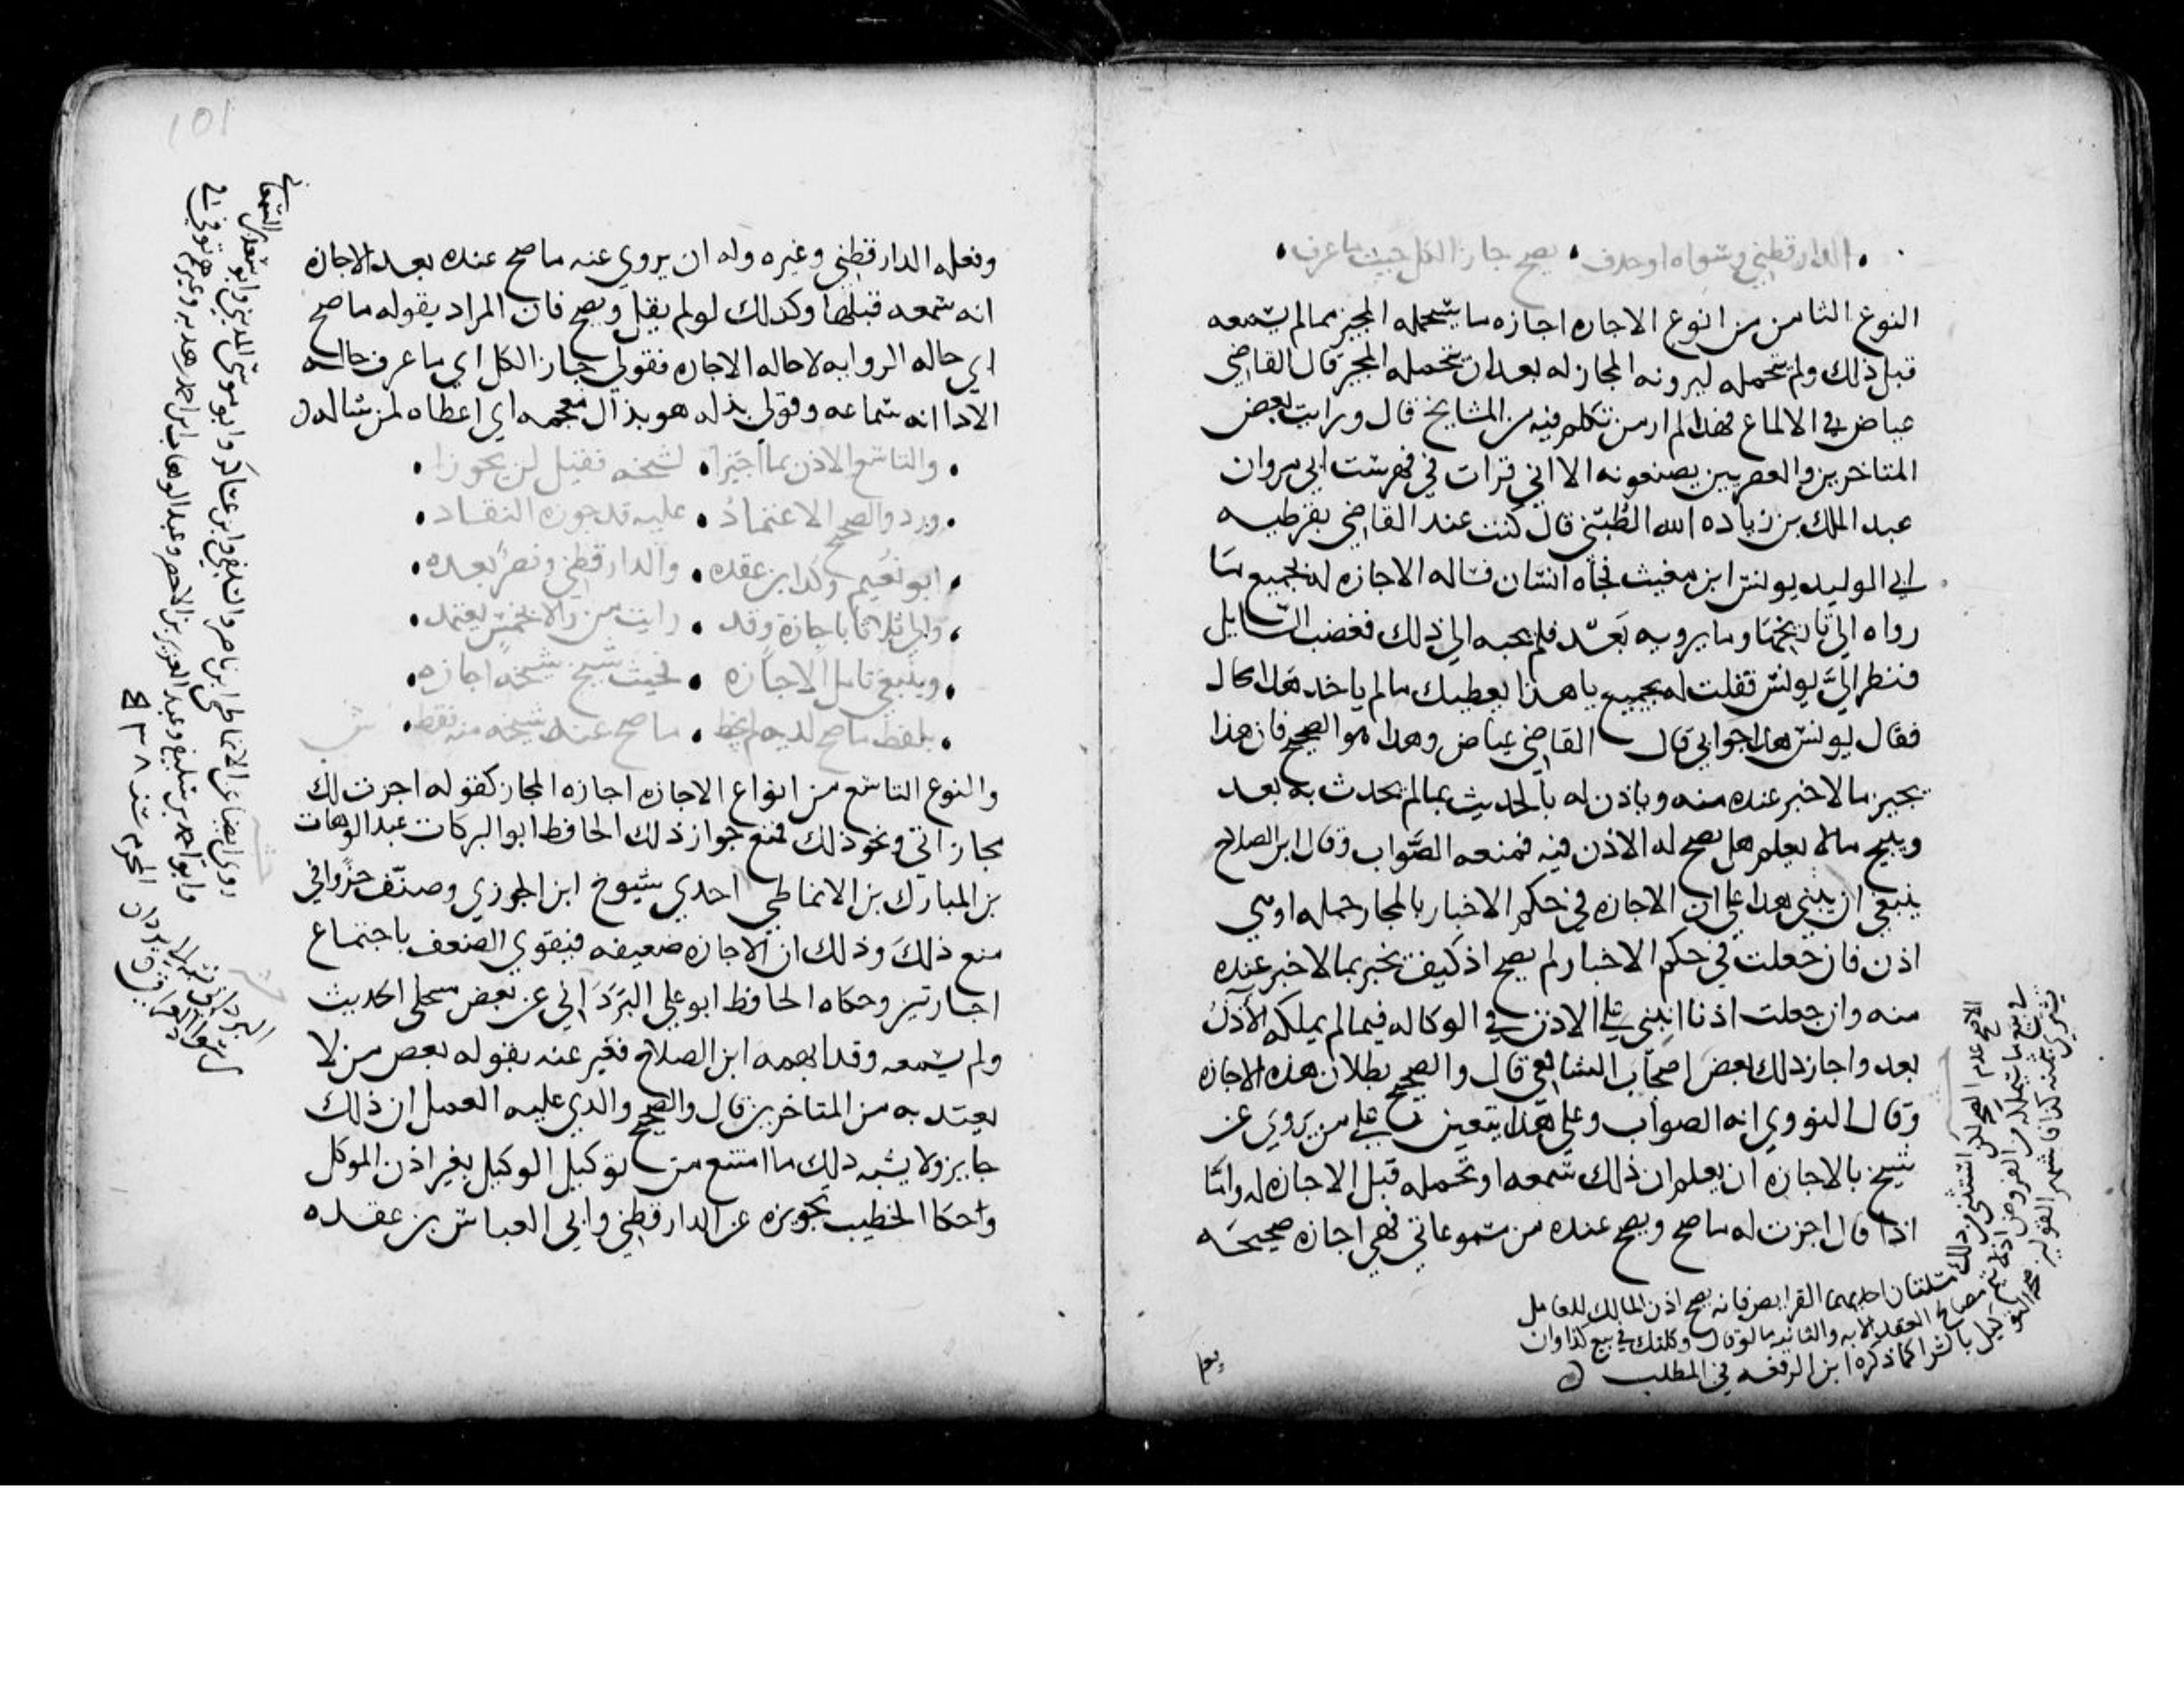 الدارقطني وسواه او حذف • يصح جاز الكل حيث ما عرف •
النوع الثامن من انوع الاجازه اجازه ما سيتحمله المجيز مما لم يسمعه
قبل ذلك ولم يتحمله ليرونه المجاز له بعد ان يتحمله المجيز قال القاضي
عياض في الالماع فهذا لم ار من تكلم فيه من المشايخ قال ورايت بعض
المتاخرين والعصريين يصنعونه الا اني قرات في فهرست ابي مروان
عبد الملك بن زياده الله الطُبّني قال كنت عند القاضي بقرطبه
ابي الوليد يونس ابن مغيث فجاه انسان فساله الاجازه له بجميع ما
رواه الى تاريخها وما يرويه بَعدُ فلم يجبه الى ذلك فغضب السايل
فنظر اليَّ يونس فقلت له يا هذا يعطيك ما لم ياخذ هذا محال
فقال يونس هذا جوابي قال القاضي عياض وهذا هو الصحيح فان هذا
يجيز ما لا خبر عنده منه وياذن له بالحديث بما لم يحدث به بعد
ويبيح ما لا يعلم هل يصح له الاذن فيه فمنعه الصَّواب وقال ابن الصلاح
ينبغي ان يبني هذا على ان الاجازه في حكم الاخبار بالمجاز جمله او هي
اذن فان جعلت في حكم الاخبار لم يصح اذ كيف يخبر بما لا خبر عنده
منه وان جعلت اذنا انبني على الاذن في الوكاله فيما لم يملكه الآذنُ
بعد واجاز ذلك بعض اصحاب الشافعي قال والصحيح بطلان هذه الاجازه
وقال النووي انه الصواب وعلى هذا يتعين على من يَروي عن
شيخ بالاجازه ان يعلم ان ذلك سمعه او تحمله قبل الاجازه له واما
اذا قال اجزت له ما صح ويصح عنده من سموعاتي فهي اجازه صحيحه
الاصح عدم الصحه لكن استثني من ذلك مسلتان احديهما القراض فانه يصح اذن المالك للعامل
في بيع ما سيملكه من العروض اذ لا يتم مصالح العقد الا به والثانيه ما لو قال وكلتك في بيع كذا وان
تشتري بثمنه كذا فاشهر القولين صحه التوكيل بالشرا كما ذكره ابن الرفعه في المطلب
وفعله الدارقطني وغيره وله ان يروي عنه ما صح عنده بعد الاجازه
انه سمعه قبلها وكذلك لو لم يقل ويصح فان المراد بقوله ما صح
اي حاله الروايه لا حاله الاجازه فقولي جاز الكل اي ما عرف حاله
الادا انه سماعه وقولي بذله هو بذال معجمه اي اعطاه لمن ساله
• والتاسع الاذن بما اجيزا • لشيخه فقيل لن يجوزا •
• ورد والصحيح الاعتمادُ • عليه قد جوزه النقاد •
• ابو نعيم وكذا ابن عقده • والدارقطني ونصرٌ بعده •
• والى ثلاثا باجازة وقد • رايت من والى بخمسٍ يعتمد •
• وينبغي تامل الاجازه • فحيث شيخ شيخه اجازه •
• بلفظ ما صح لديه لم يخط • ما صح عند شيخه منه فقط • ش
والنوع التاسع من انواع الاجازه اجازه المجاز كقوله اجزت لك
مجازاتي ونحو ذلك فمنع جواز ذلك الحافظ ابو البركات عبد الوهاب
بن المبارك بن الانماطي احدي شيوخ ابن الجوزي وصنّف جزوا في
منع ذلك وذلك ان الاجازه ضعيفه فيقوي الضعف باجتماع
اجازتين وحكاه الحافظ ابو علي البَرَدَاني عن بعض منتحلي الحديث
ولم يسمه وقد ابهمه ابن الصلاح فعبر عنه بقوله بعض من لا
يعتد به من المتاخرين قال والصحيح والذي عليه العمل ان ذلك
جايز ولا يشبه ذلك ما امتنع من توكيل الوكيل بغير اذن الموكل
وحكا الخطيب تجويزه عن الدارقطني وابي العباس بن عقده
روى ايضا عن الانماطي ابن ناصر والسلفي وابن عساكر وابو موسى المديني وابو سعد السمعاني
وابو احمد بن سكينه وعبد العزيز بن الاخضر وعبد الوهاب وغيرهم توفي في
المحرم سنه ٥٣٨